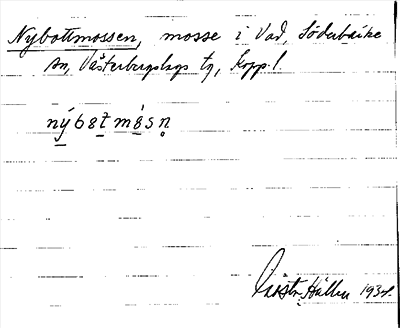 Nybottmossen, mosse i Vad, Söderbärke
sn, Västerbergslags tg, Kopp. l.
nýbotmòsn̥
Hallen 1934.